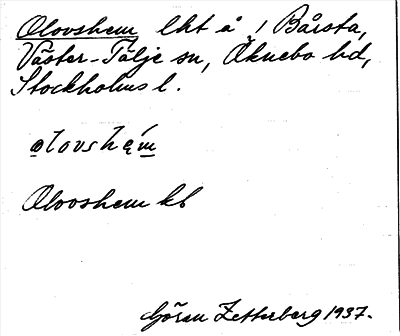 Olovshem lht å 1 Bårsta,
Väster-Tälje sn, Öknebo hd,
Stockholms l.
olovshęm
Olovshem kb
Göran Zetterberg 1937.